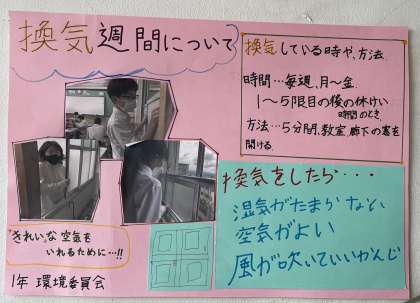 換気週間について
換気している時や、方法。
時間…毎週、月〜金
1〜5限目の後の休けい
時間のとき。
方法…5分間、教室、廊下の窓を
開ける。
換気をしたら・・・
湿気がたまらない
空気がよい
風が吹いていいかんじ
"きれい"な空気を
いれるために…!!
1年 環境委員会